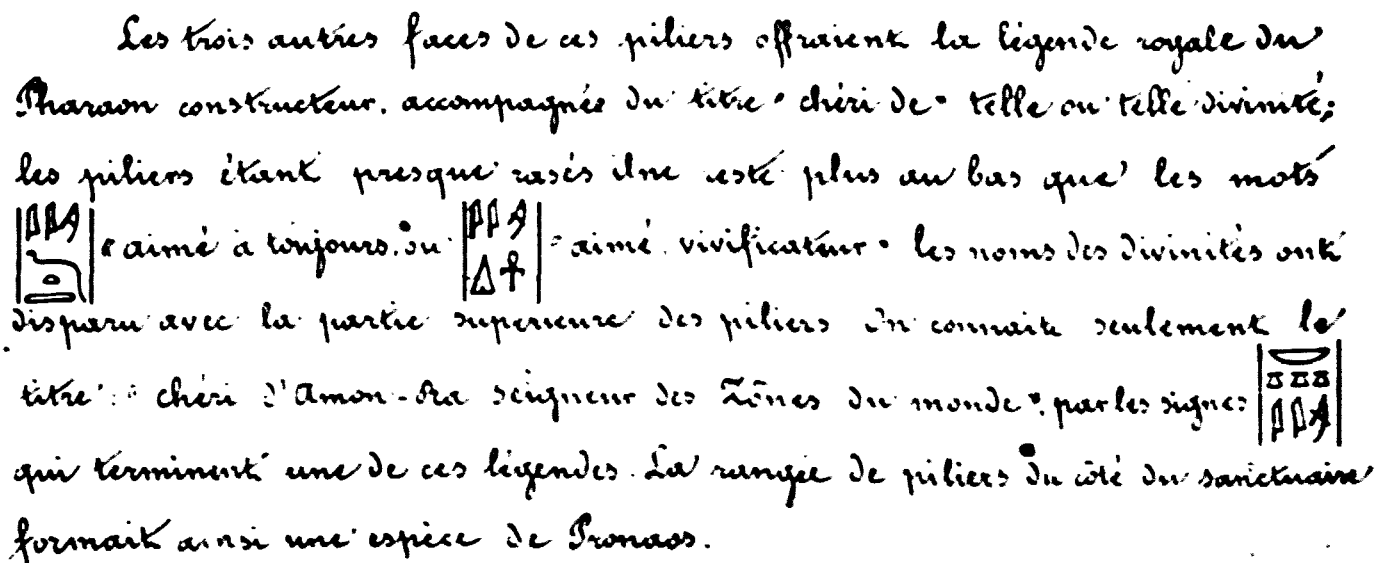 Les trois autres faces de ces piliers offraient la légende royale du
Pharaon constructeur, accompagnée du titre "chéri de" telle ou telle divinité;
les piliers étant presque rasés il ne reste plus au bas que les mots
"aimé à toujours, ou "aimé vivificateur" les noms des divinités ont
disparu avec la partie supérieure des piliers On connaît seulement le
titre: "chéri d'Amon-Ra seigneur des Zônes du monde", par les signes
qui terminent une de ces légendes. La rangée de piliers du côté du sanctuaire
formait ainsi une espèce de Pronaos.